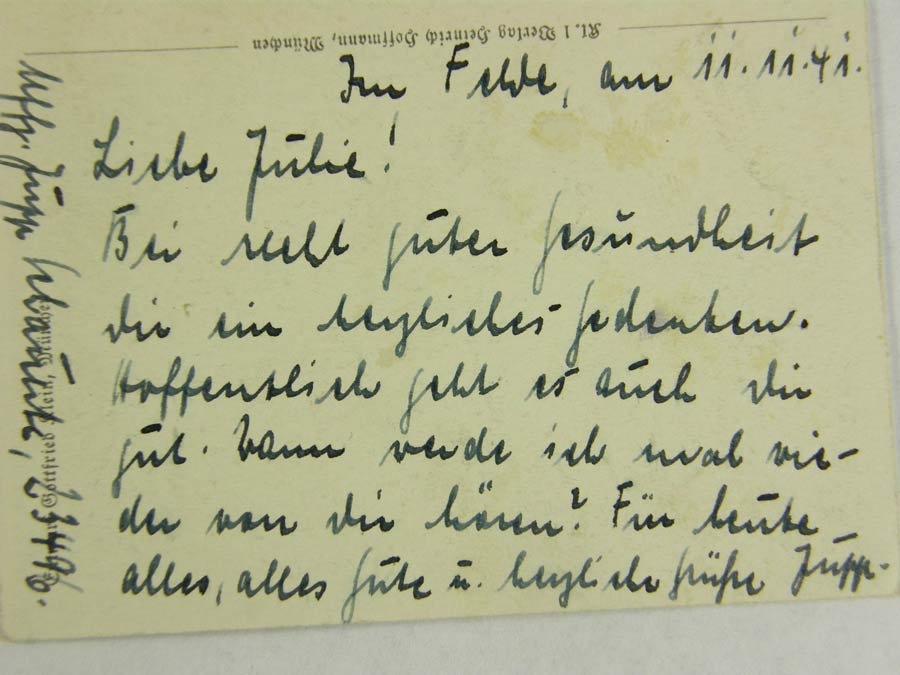 Kl. 1 Verlag Heinrich Hoffmann, München
Im Felde, am 11.11.41.
Liebe Julie!
Bei recht guter Gesundheit
dir ein herzliches Gedenken.
Hoffentlich geht es auch dir
gut. Wann werde ich mal wie-
der von dir hören? Für heute
alles, alles Gute u. herzliche Grüße Jupp.
Uffz. Jupp
23446.
Gottfried Klein, München